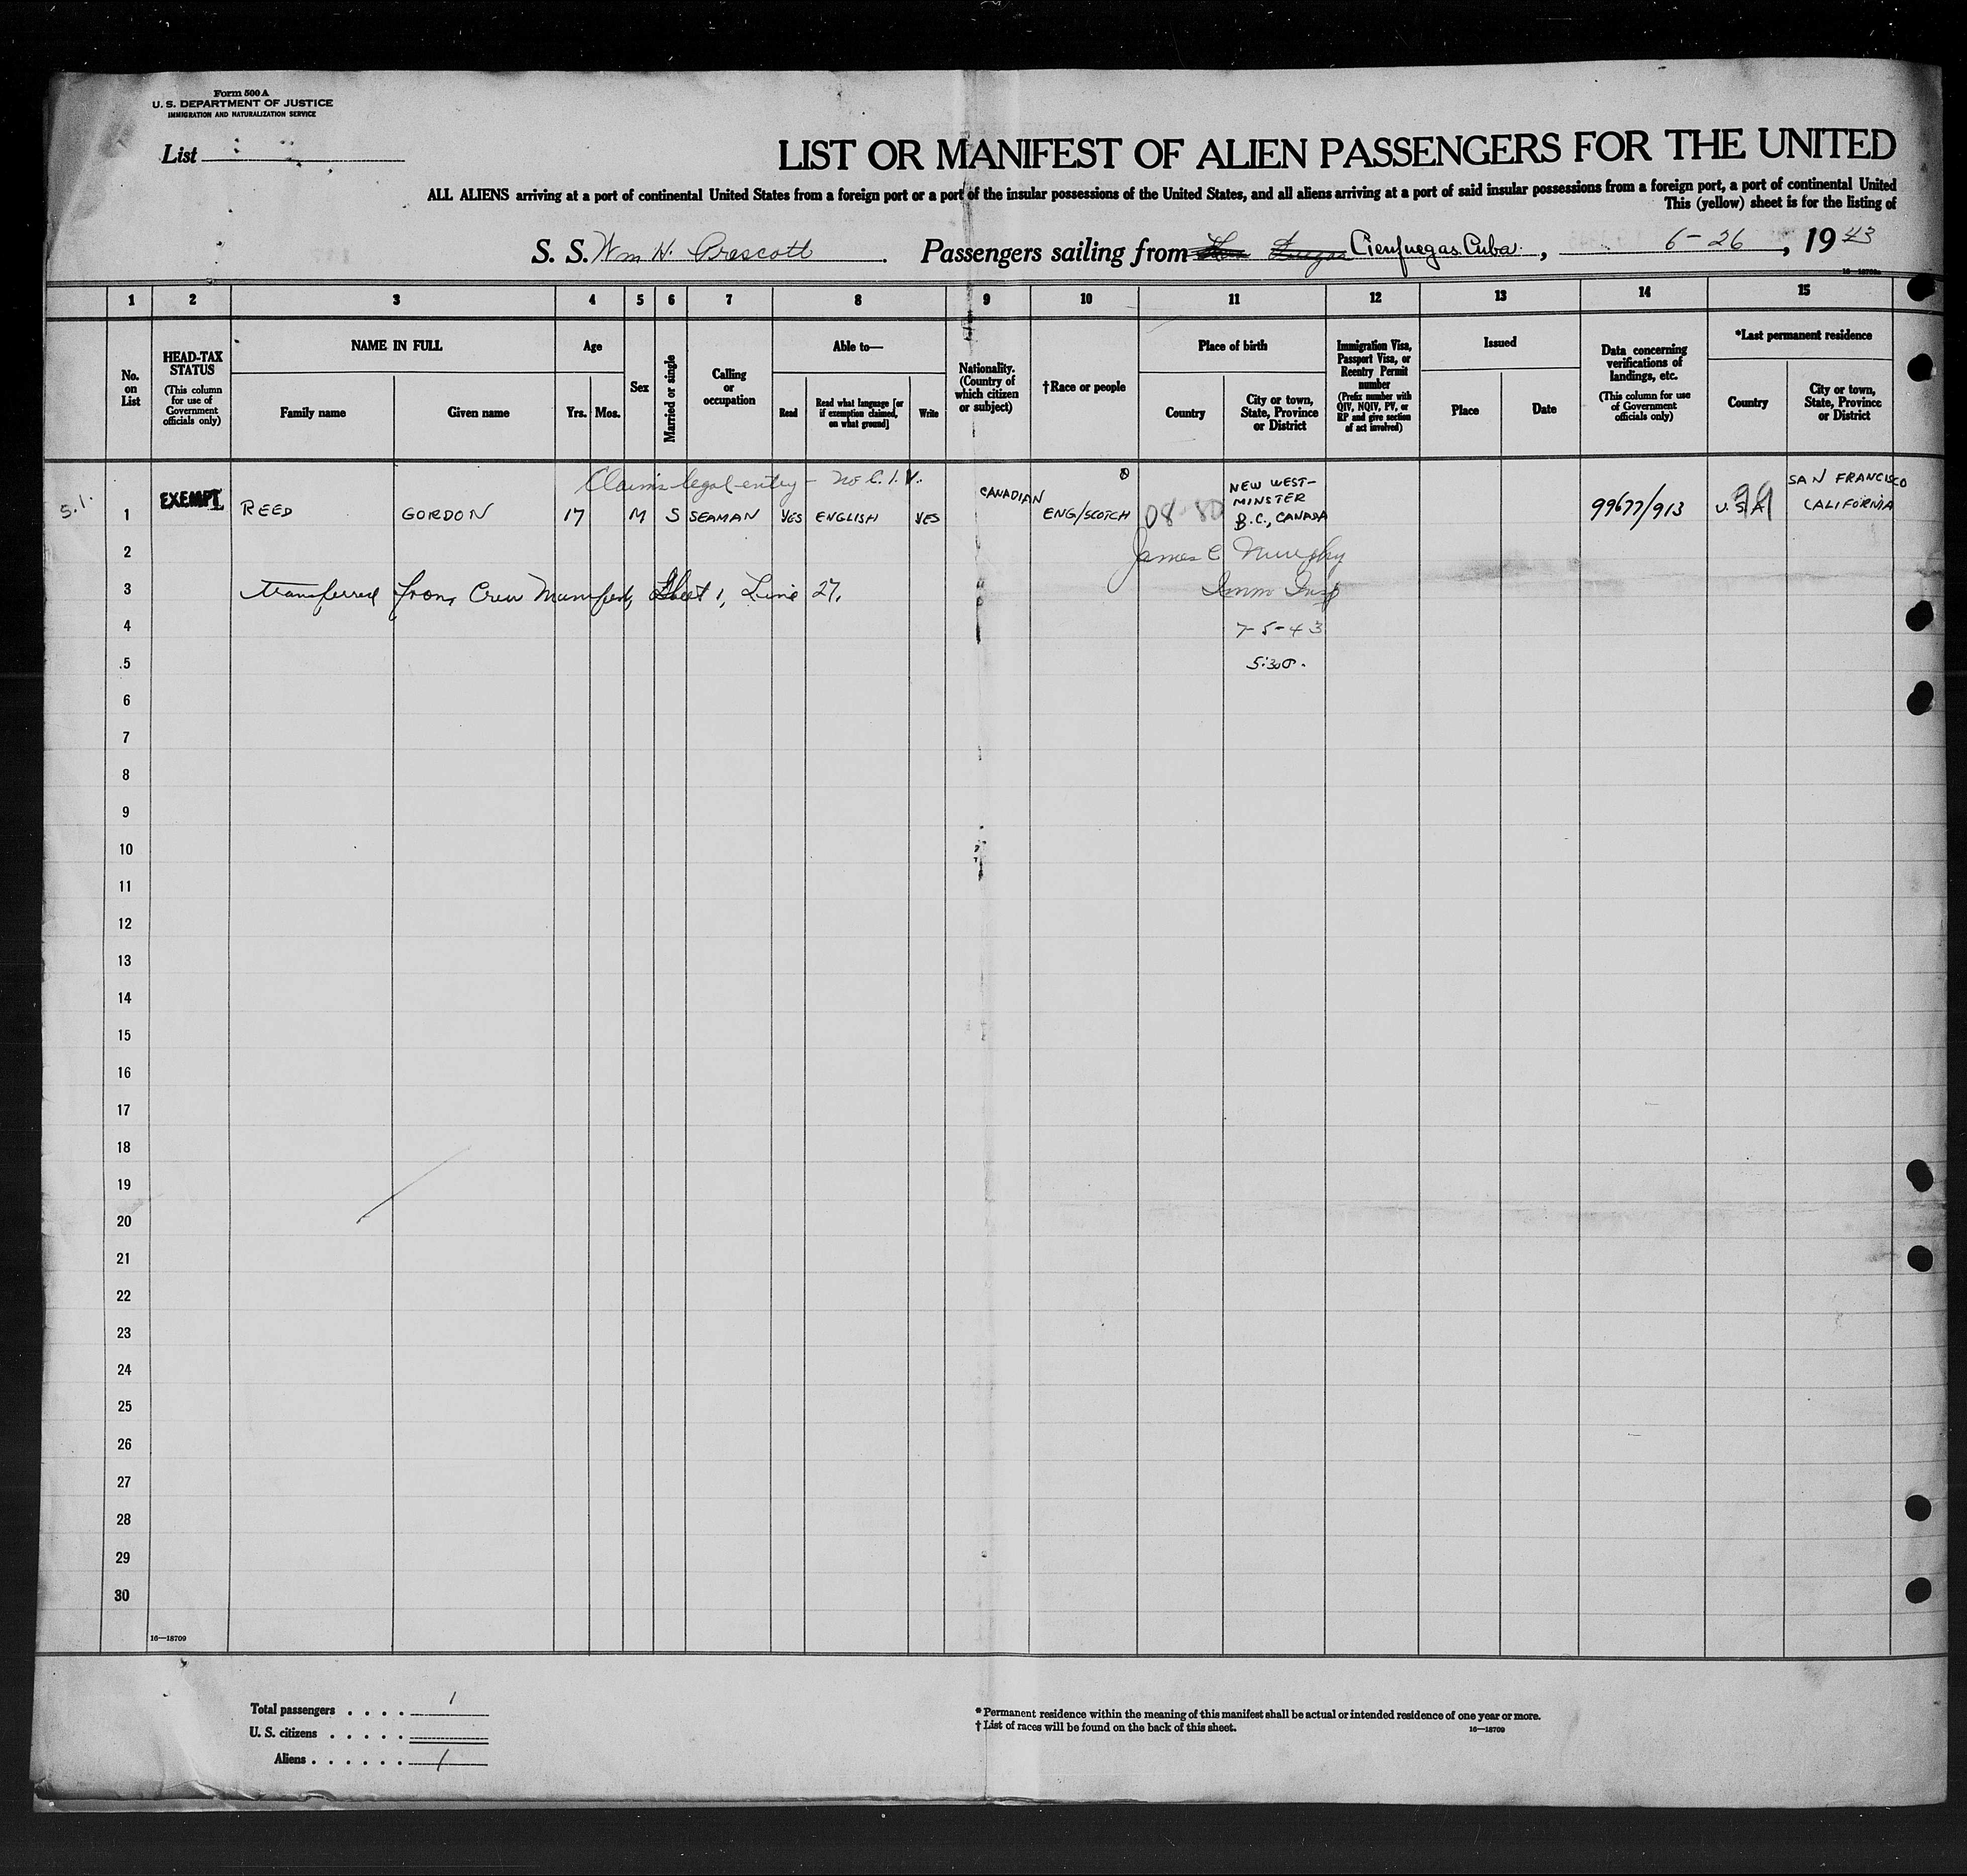 Form 500 A
U. S. DEPARTMENT OF JUSTICE
IMMIGRATION AND NATURALIZATION SERVICE
List
LIST OR MANIFEST OF ALIEN PASSENGERS FOR THE UNITED
ALL ALIENS arriving at a port of continental United States from a foreign port or a port of the insular possessions of the United States, and all aliens arriving at a port of said insular possessions from a foreign port, a port of continental United
This (yellow) sheet is for the listing of
S. S. Wm H. Prescott. Passengers sailing from Cienfuegas Cuba, 6-26, 1943
16—18709a
1 2 3 4 5 6 7 8 9 10 11 12 13 14 15
No. on List
HEAD-TAX STATUS
(This column for use of Government officials only)
NAME IN FULL
Family name
Given name
Age
Yrs.
Mos.
Sex
Married or single
Calling or occupation
Able to—
Read
Read what language [or if exemption claimed, on what ground]
Write
Nationality. (Country of which citizen or subject)
†Race or people
Place of birth
Country
City or town, State, Province or District
Immigration Visa, Passport Visa, or Reentry Permit number
(Prefix number with QIV, NQIV, PV, or RP and give section of act involved)
Issued
Place
Date
Data concerning verifications of landings, etc.
(This column for use of Government officials only)
*Last permanent residence
Country
City or town, State, Province or District
Claims legal entry - no C.I.V.
5.1.
1 EXEMPT REED GORDON 17 M S SEAMAN YES ENGLISH YES CANADIAN ENG/SCOTCH 08-80 NEW WEST-MINSTER B.C., CANADA 99677/913 U.S.A. 99 SAN FRANCISCO CALIFORNIA
2 James C Murphy
3 transferred from Crew Manifest, Sheet 1, Line 27. Imm Insp
4 7-5-43
5 5:30P.
6
7
8
9
10
11
12
13
14
15
16
17
18
19
20
21
22
23
24
25
26
27
28
29
30
16—18709
Total passengers . . . . 1
U. S. citizens . . . . .
Aliens . . . . . . 1
* Permanent residence within the meaning of this manifest shall be actual or intended residence of one year or more.
† List of races will be found on the back of this sheet.
16—18709